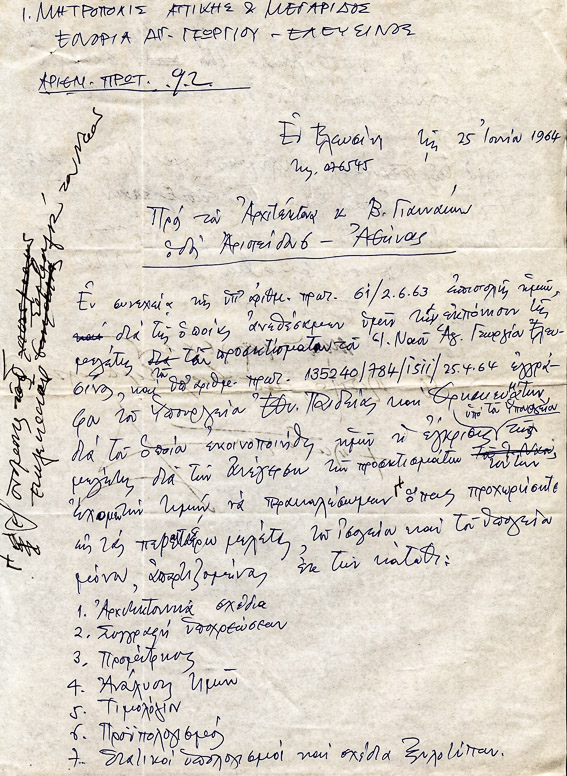 Ι. ΜΗΤΡΟΠΟΛΙΣ ΑΤΤΙΚΗΣ & ΜΕΓΑΡΙΔΟΣ
ΕΝΟΡΙΑ ΑΓ. ΓΕΩΡΓΙΟΥ - ΕΛΕΥΣΙΝΟΣ
ΑΡΙΘΜ. ΠΡΩΤ. 92
Ἐν Ἐλευσῖνι τῇ 25 Ἰουνίου 1964
τηλ. 076545
Πρὸς τὸν Ἀρχιτέκτονα κ. Β. Γιαννάκην
ὁδὸς Ἀριστείδου - Ἀθήνας
Ἐν συνεχείᾳ τῆς ὑπ' ἀριθμ. πρωτ. 61/2.6.63 ἐπιστολῆς ἡμῶν,
διὰ τῆς ὁποίας ἀναθέσαμεν ὑμῖν τὴν ἐκπόνησιν τῆς
μελέτης τοῦ προσκτίσματος τοῦ Ἱ. Ναοῦ Ἁγ. Γεωργίου Ἐλευ-
σῖνος, καὶ τοῦ ὑπ' ἀριθμ. πρωτ. 135240/784/ 25.4.64 ἐγγρά-
φου τοῦ Ὑπουργείου Ἐθν. Παιδείας καὶ Θρησκευμάτων
διὰ τοῦ ὁποίου ἐκοινοποιήθη ἡμῖν ἡ ἔγκρισις ὑπὸ τοῦ Ὑπουργείου τῆς
μελέτης διὰ τὴν ἀνέγερσιν τῶν προσκτισμάτων
ἔχομεν τὴν τιμὴν νὰ παρακαλέσωμεν ὅπως προχωρήσητε
εἰς τὰς περαιτέρω μελέτας, τοῦ ἰσογείου καὶ τοῦ ὑπογείου
μόνον, ἀπαρτιζομένας ἐκ τῶν κάτωθι:
1. Ἀρχιτεκτονικὰ σχέδια
2. Συγγραφὴ ὑποχρεώσεων
3. Προμέτρησις
4. Ἀνάλυσις τιμῶν
5. Τιμολόγιον
6. Προϋπολογισμὸς
7. Στατικοὶ ὑπολογισμοὶ καὶ σχέδια ξυλοτύπων.